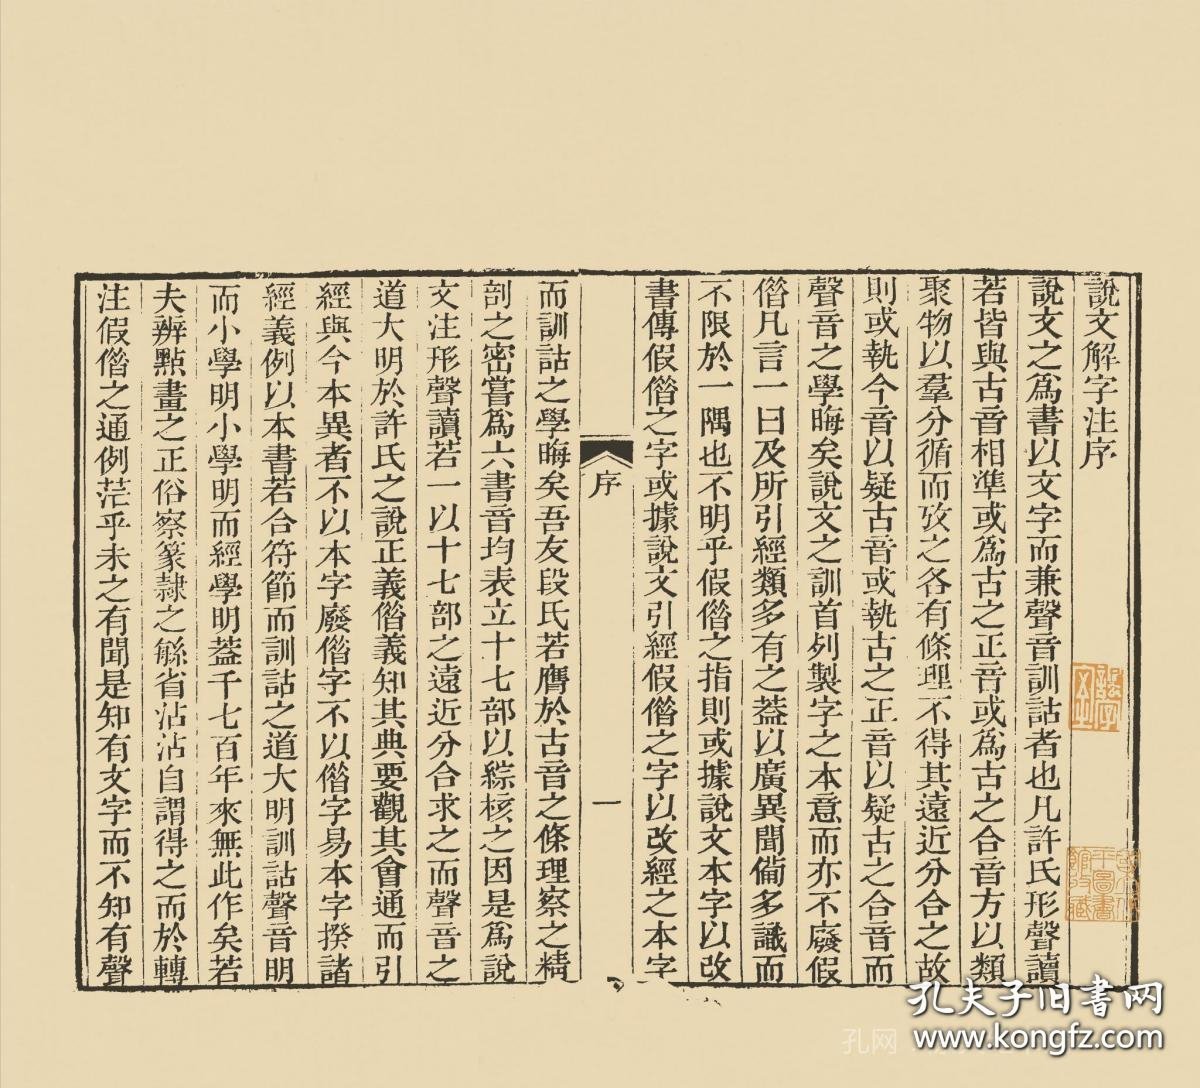 說文解字注序
說文之爲書以文字而兼聲音訓詁者也凡許氏形聲讀
若皆與古音相準或爲古之正音或爲古之合音方以類
聚物以羣分循而攷之各有條理不得其遠近分合之故
則或執今音以疑古音或執古之正音以疑古之合音而
聲音之學晦矣說文之訓首列製字之本意而亦不廢假
僭凡言一曰及所引經類多有之葢以廣異聞僃多識而
不限於一隅也不明乎假僭之指則或據說文本字以改
書傳假僭之字或據說文引經假僭之字以改經之本字
序
一
而訓詁之學晦矣吾友段氏若膺於古音之條理察之精
剖之密嘗爲六書音均表立十七部以綜核之因是爲說
文注形聲讀若一以十七部之遠近分合求之而聲音之
道大明於許氏之說正義僭義知其典要觀其會通而引
經與今本異者不以本字廢僭字不以僭字易本字揆諸
經義例以本書若合符節而訓詁之道大明訓詁聲音明
而小學明小學明而經學明葢千七百年來無此作矣若
夫辨點畫之正俗察篆隸之緐省沾沾自謂得之而於轉
注假僭之通例茫乎未之有聞是知有文字而不知有聲
孔夫子旧書网
www.kongfz.com
孔网